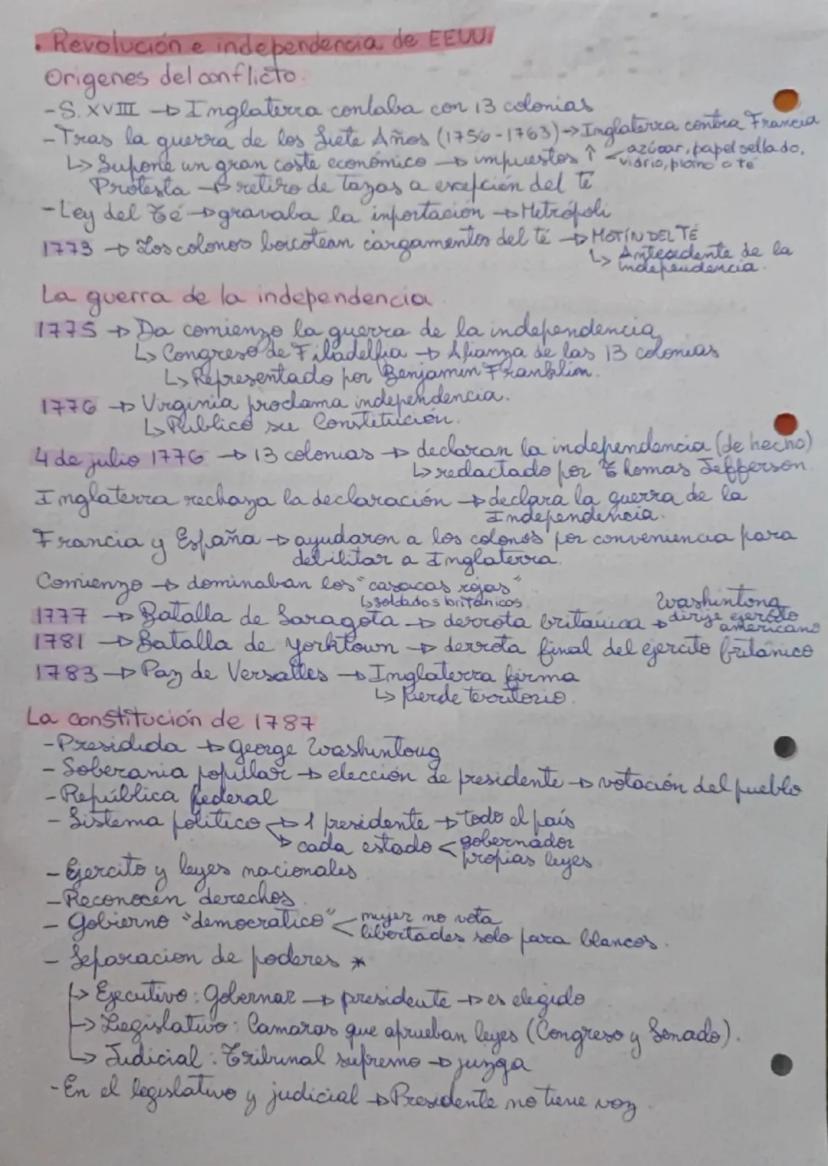 . Revolución e independencia de EEUU.
Origenes del conflicto.
- S. XVIII → Inglaterra contaba con 13 colonias
- Tras la guerra de los Siete Años (1756-1763) → Inglaterra contra Francia
↳ Supone un gran coste económico → impuestos ↑ < azúcar, papel sellado,
vidrio, plomo o té
Protesta → retiro de tazas a excepción del té
- Ley del Té → gravaba la inportación → Metrópoli
1773 → Los colonos boicotean cargamentos del té → MOTÍN DEL TÉ
↳ Antecedente de la
independencia.
La guerra de la independencia
1775 → Da comienzo la guerra de la independencia
↳ Congreso de Filadelfia → Alianza de las 13 colonias
↳ Representado por Benjamin Franklin.
1776 → Virginia proclama independencia.
↳ Publico su Constitución.
4 de julio 1776 → 13 colonias → declaran la independencia (de hecho)
↳ redactado por Thomas Jefferson.
Inglaterra rechaza la declaración → declara la guerra de la
Independencia.
Francia y España → ayudaron a los colonos por conveniencia para
debilitar a Inglaterra.
Comienzo → dominaban los "casacas rojas"
↳ soldados británicos.
1777 → Batalla de Saragota → derrota británica → Washintong
dirije ejercito
americano
1781 → Batalla de Yorktown → derrota final del ejercito británico
1783 → Paz de Versalles → Inglaterra firma
↳ Pierde territorio.
La constitución de 1787
- Presidida → George Washintong
- Soberania popular → elección de presidente → votación del pueblo
- República federal
- Sistema político → 1 presidente → todo el país
→ cada estado < gobernador
propias leyes
- Ejercito y leyes nacionales
- Reconocen derechos.
- Gobierno "democrático" < mujer no vota
libertades solo para blancos.
- Separacion de poderes *
↳ Ejecutivo: gobernar → presidente → es elegido
↳ Legislativo: Camaras que aprueban leyes (Congreso y Senado).
↳ Judicial: Tribunal supremo → juzga
- En el legislativo y judicial → Presidente no tiene voz.